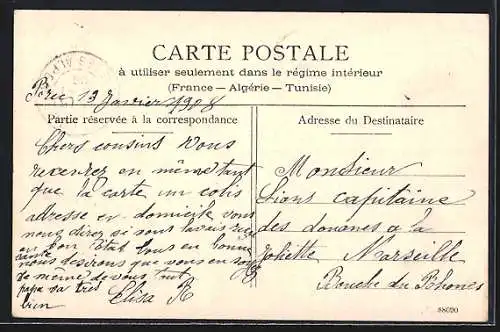 CARTE POSTALE
à utiliser seulement dans le régime intérieur
(France — Algérie — Tunisie)
13 Janvier 1908
Partie réservée à la correspondance
Adresse du Destinataire
Chers cousins Vous
recevrez en même tant
que la carte un colis
adresse en domicile vous
nous direz si vous lavais
en bon État tous en bonne
sante nous desirons que vous en
de même de vous tout
papa va tres
bien
Elisa R
Monsieur
Lions capitaine
des douanes a la
Joliette Marseille
Bouche du Rhones
88090